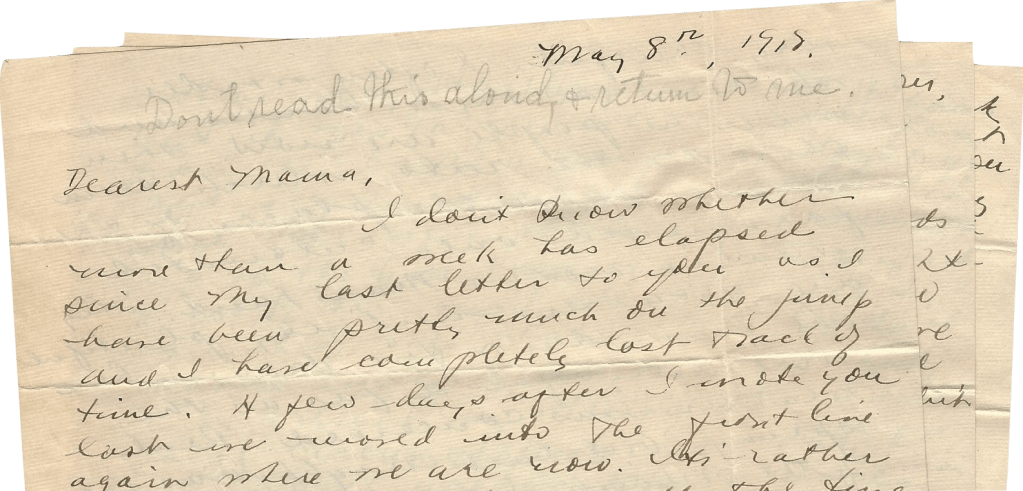 May 8th, 1918.
Don't read this aloud, & return to me.
Dearest Mama,
I don't know whether
more than a week has elapsed
since my last letter to you as I
have been pretty much on the jump
and I have completely lost track of
time. A few days after I wrote you
last we moved into the front line
again where we are now. It's rather
the time